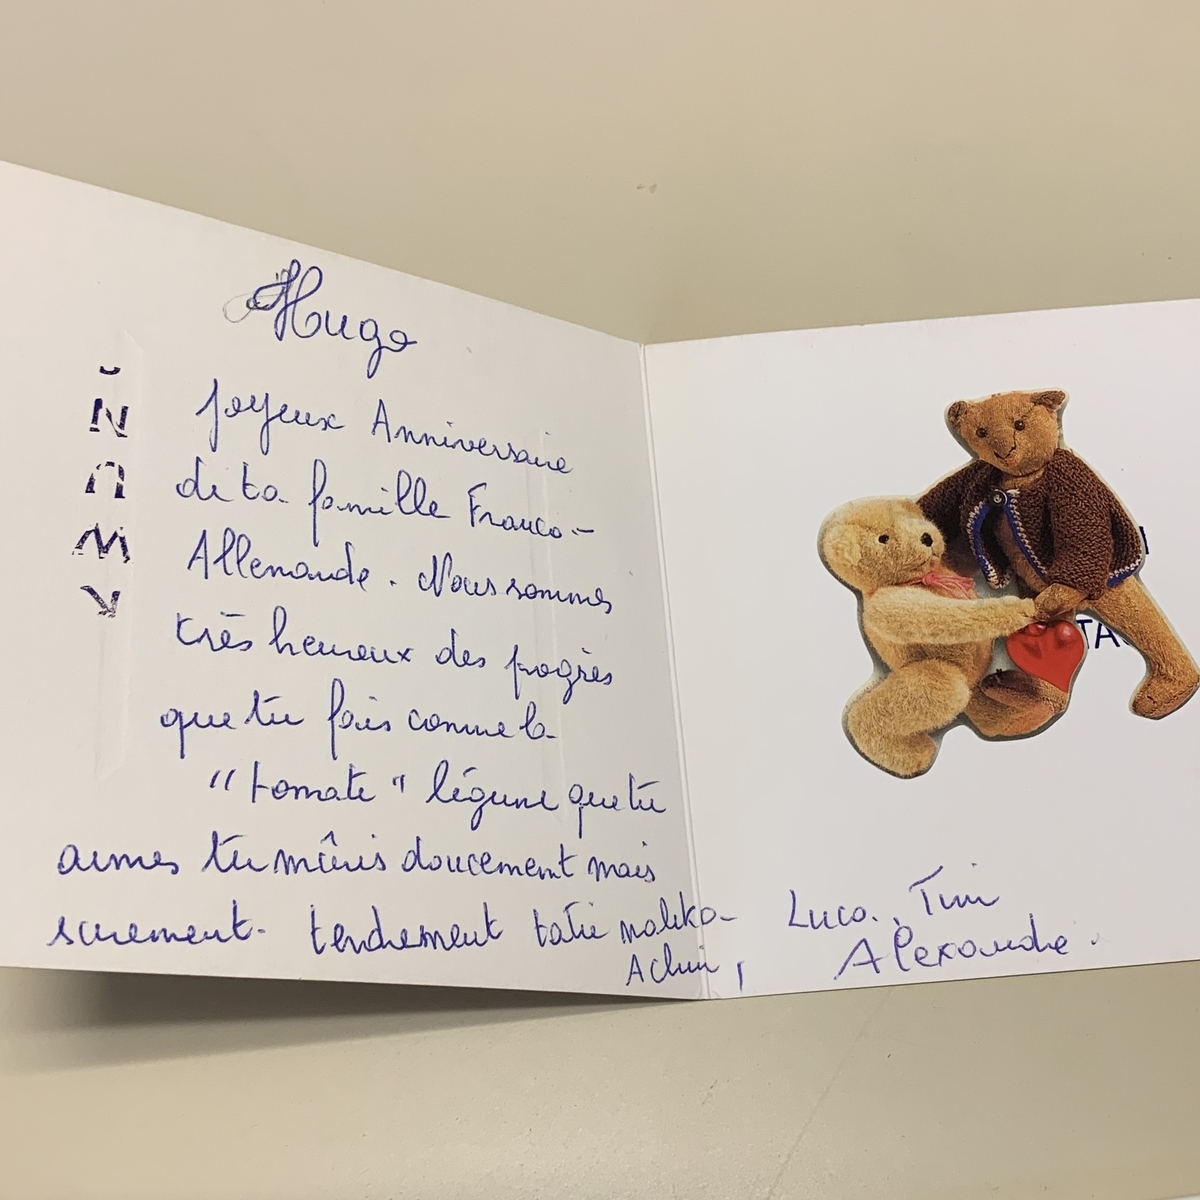 Hugo
Joyeux Anniversaire
de ta famille Franco-
Allemande. Nous sommes
très heureux des progrès
que tu fais comme la
"tomate" légume que tu
aimes tu mûris doucement mais
surement. tendrement tatie malika
Achim,
Luca, Tim
Alexandre.
TA